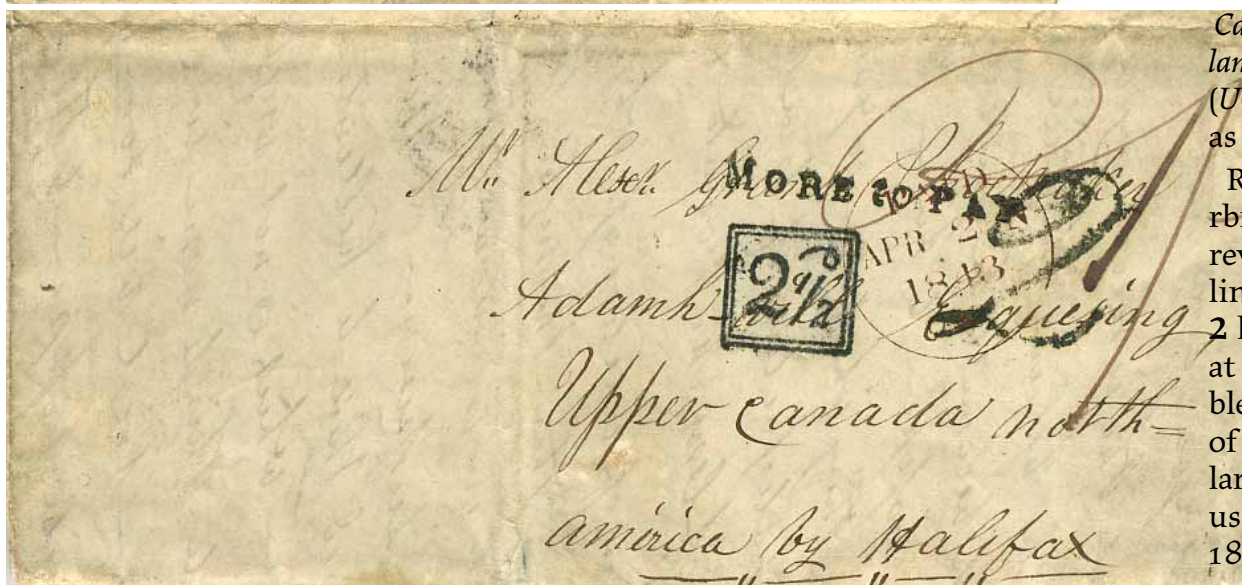 Mr. Alexr. Grant
MORE to PAY
PAID
APR 2
1843
2d 1/2
Adamh-
Upper Canada north=
america by Halifax
Ca
lan
(U
as
R
rbi
rev
lin
2
at
ble
of
lar
us
18